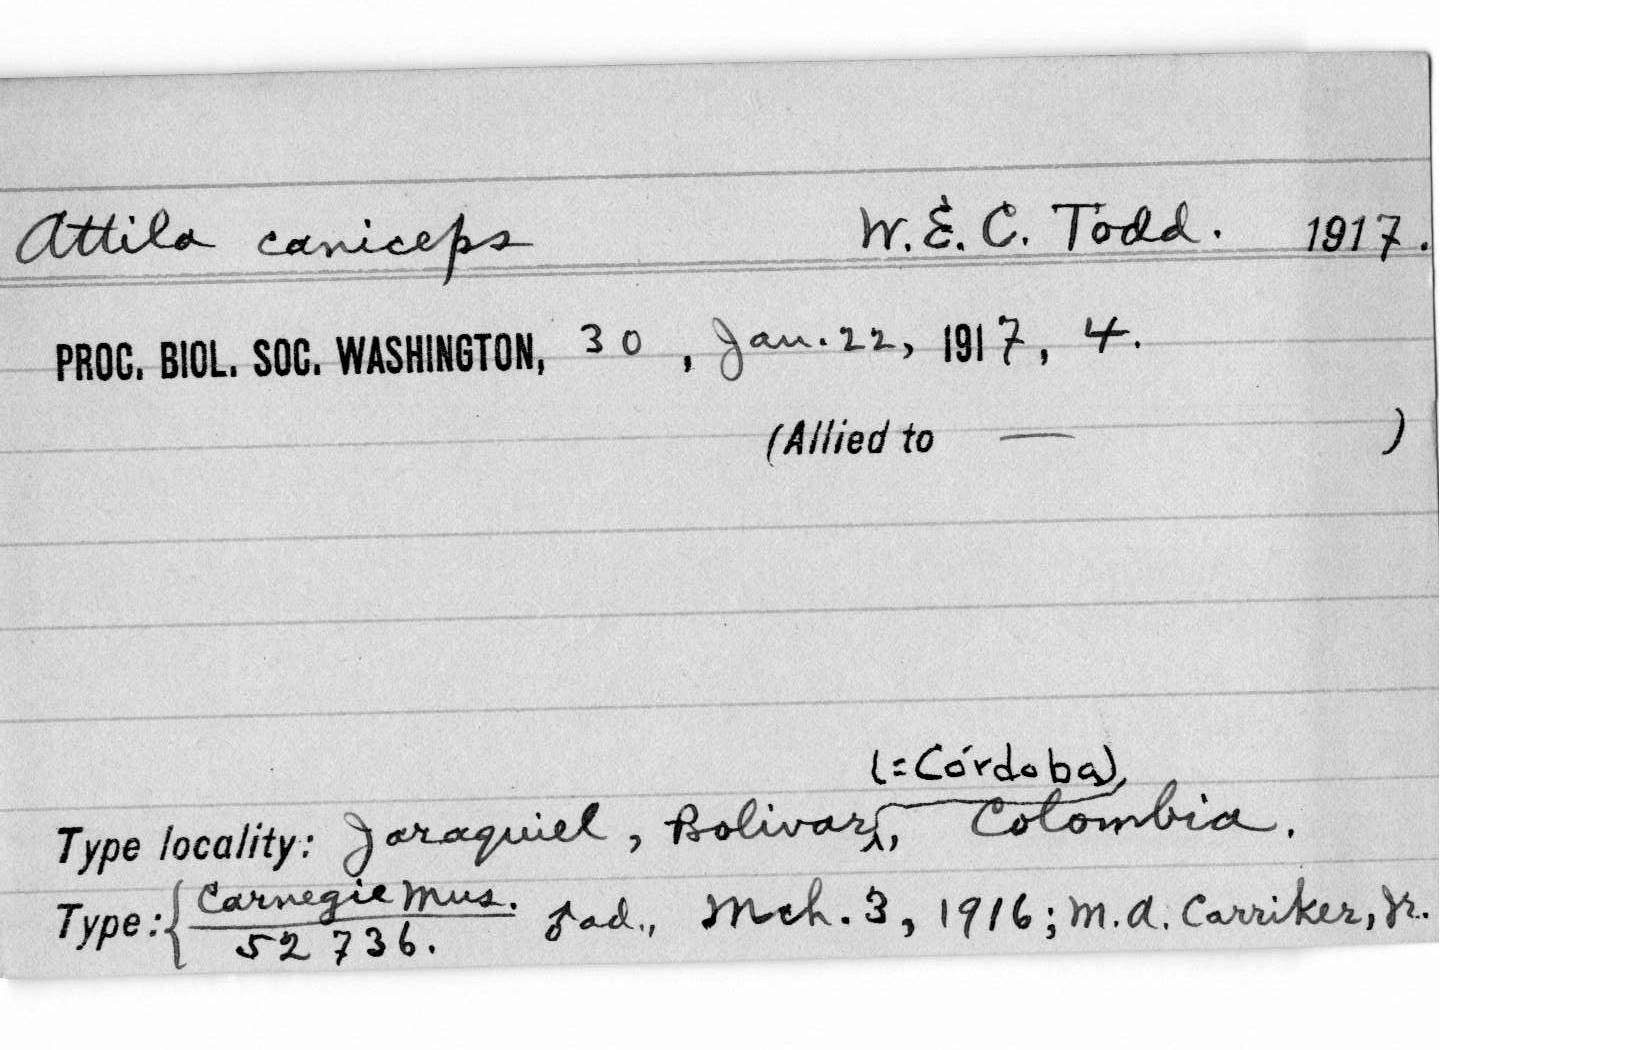 Attila caniceps W. E. C. Todd. 1917.
PROC. BIOL. SOC. WASHINGTON, 30, Jan. 22, 1917, 4.
(Allied to — )
(=Córdoba)
Type locality: Jaraquiel, Bolivar, Colombia.
Type: { Carnegie Mus. ad., Mch. 3, 1916; M. A. Carriker, Jr.
52 736.